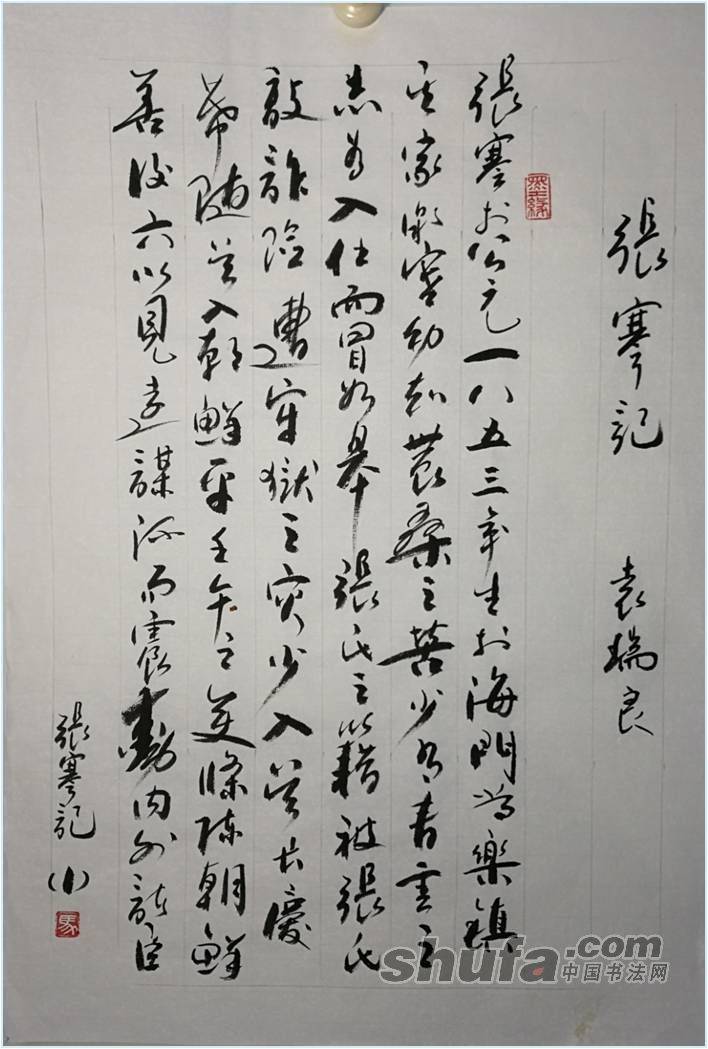 張謇記 袁瑞良
張謇於公元一八五三年生於海門常樂鎮
其家微寒幼知農桑之苦少有青雲之
志為入仕而冒如皋張氏之籍被張氏
敲詐險遭牢獄之灾少入吳長慶
幕隨吳入朝鮮平壬午之變條陳朝鮮
善後六以見遠謀深而震動內外諸臣
張謇記（1）
無縁
馬
shufa.com
中国书法网